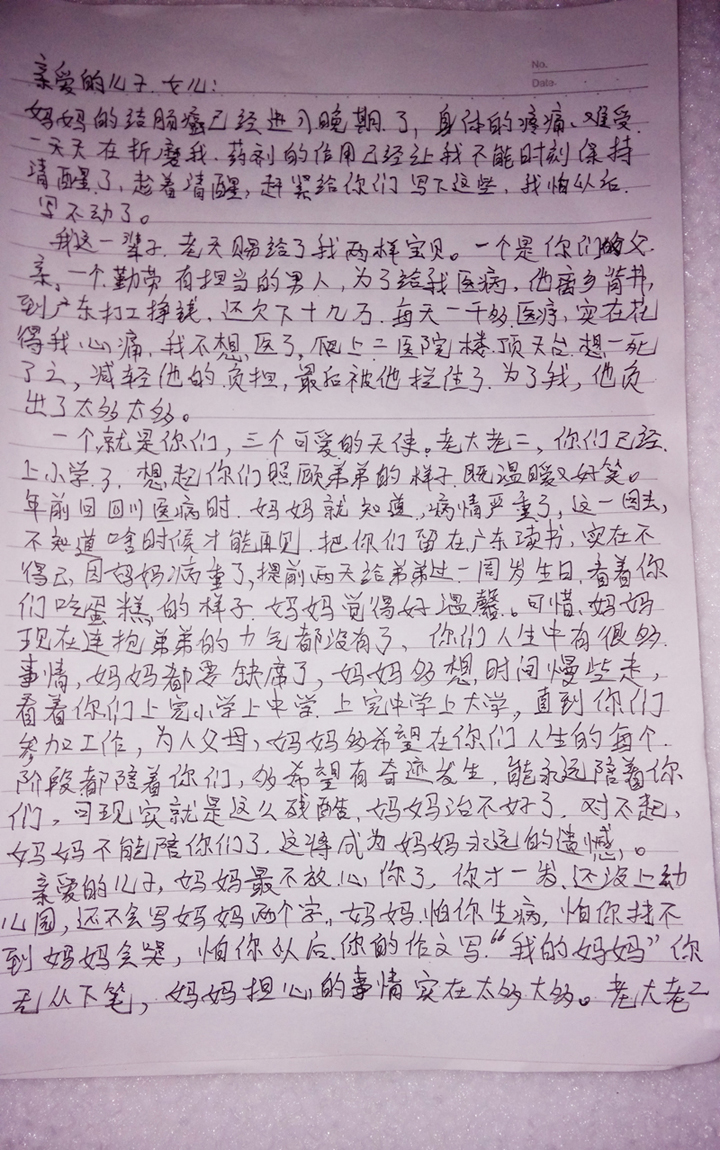 No.
Date.
亲爱的儿子.女儿:
妈妈的结肠癌已经进入晚期了，身体的疼痛、难受.
一天天在折磨我.药剂的作用已经让我不能时刻保持
清醒了，趁着清醒，赶紧给你们写下这些，我怕以后.
写不动了。
我这一辈子.老天赐给了我两样宝贝。一个是你们的父
亲，一个勤劳有担当的男人，为了给我医病，他离乡背井，
到广东打工挣钱，还欠下十几万.每天一千多医疗，实在花
得我心痛，我不想医了，爬上二医院楼顶天台.想一死
了之，减轻他的负担，最后被他拦住了.为了我，他负
出了太多太多。
一个，就是你们，三个可爱的天使。老大老二，你们已经
上小学了.想起你们照顾弟弟的样子.既温暖又好笑。
年前回四川医病时，妈妈就知道，病情严重了，这一回去，
不知道啥时候才能再见.把你们留在广东读书，实在不
得已，因妈妈病重了，提前两天给弟弟过一周岁生日.看着你
们吃蛋糕的样子.妈妈觉得好温馨。可惜，妈妈
现在连抱弟弟的力气都没有了，你们人生中有很多
事情，妈妈都要缺席了，妈妈多想，时间慢些走，
看着你们上完小学上中学.上完中学上大学，直到你们
参加工作，为人父母，妈妈多希望在你们人生的每个
阶段都陪着你们，多希望有奇迹发生，能永远陪着你
们，可现实就是这么残酷，妈妈治不好了.对不起，
妈妈不能陪你们了.这将成为妈妈永远的遗憾，。
亲爱的儿子，妈妈最不放心你了，你才一岁.还没上幼
儿园，还不会写妈妈两个字，妈妈怕你生病，怕你找不
到妈妈会哭，怕你以后.你的作文写“我的妈妈”你
无从下笔，妈妈担心的事情实在太多太多。老大老二